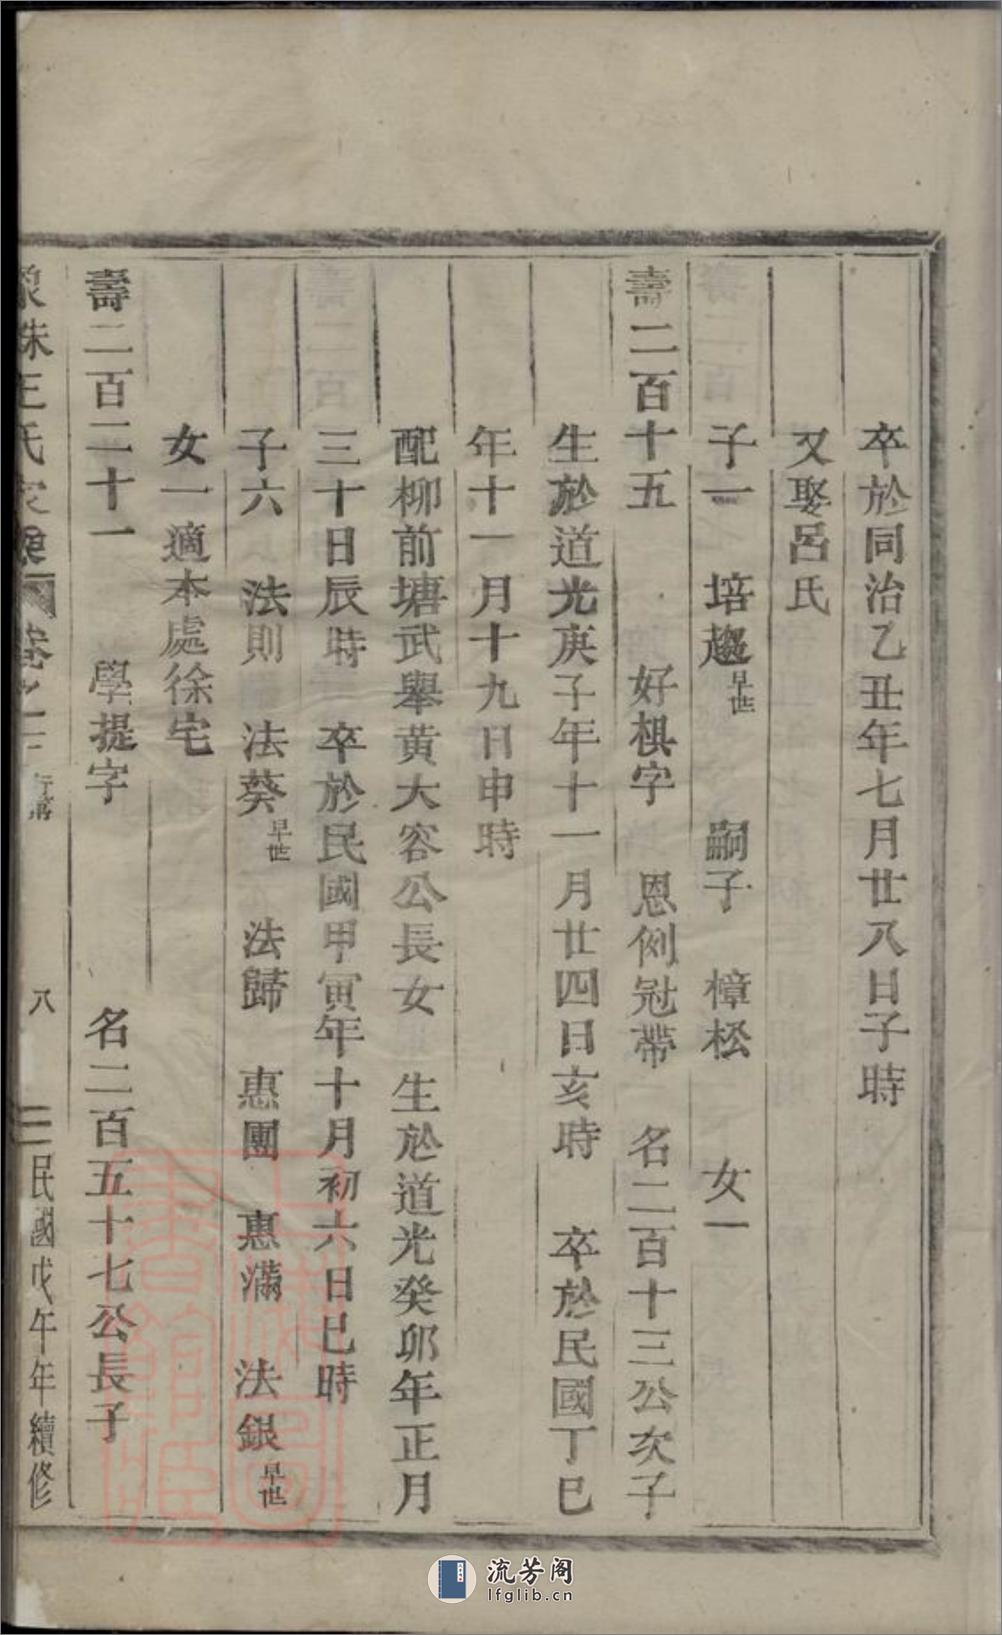 卒於同治乙丑年七月廿八日子時
又娶呂氏
子一 培趨早世 嗣子 樟松 女一
壽二百十五 好棋字 恩例冠帶 名二百十三公次子
生於道光庚子年十一月廿四日亥時 卒於民國丁巳
年十一月十九日申時
配柳前塘武舉黃大容公長女 生於道光癸卯年正月
三十日辰時 卒於民國甲寅年十月初六日巳時
子六 法則 法葵早世 法歸 惠團 惠滿 法銀早世
女一適本處徐宅
壽二百二十一 學提字 名二百五十七公長子
珠王氏 八 民國戊午年續修
流芳阁
lfglib.cn